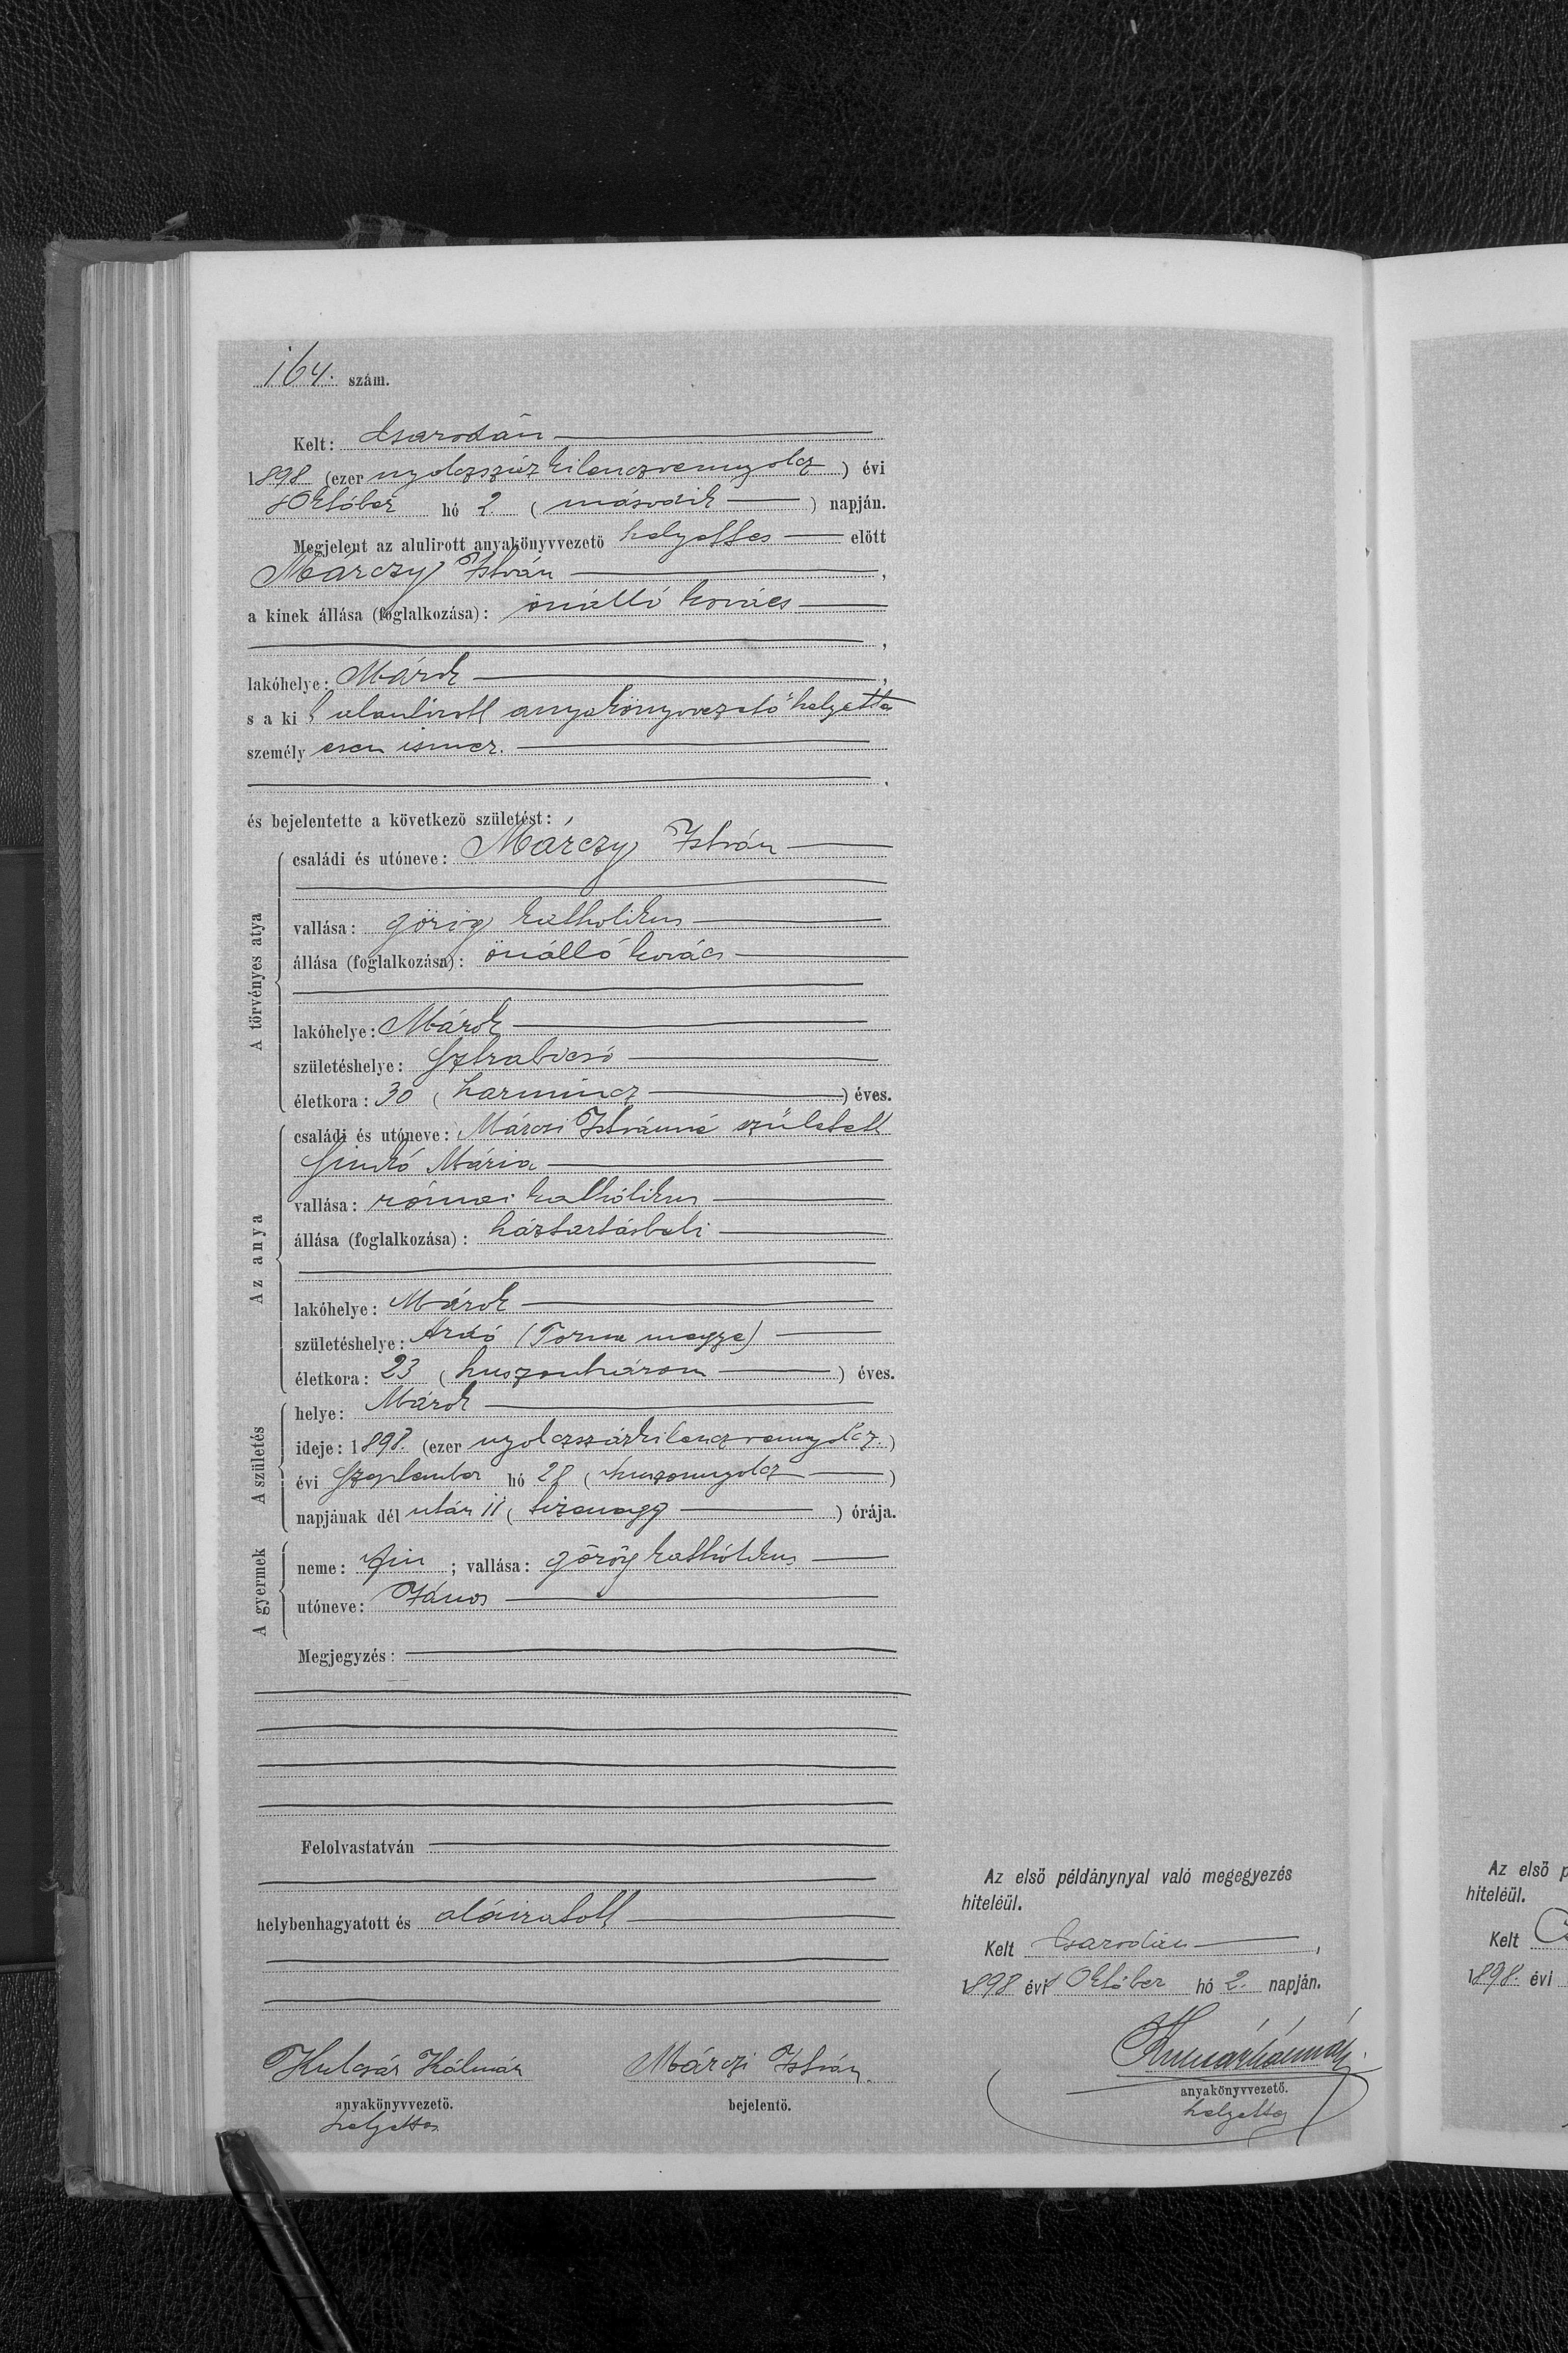 164. szám.
Kelt: Csarodán
1898 (ezer nyolczszázkilenczvennyolcz) évi
Október hó 2. (második) napján.
Megjelent az alulirott anyakönyvvezető helyettes előtt
Márczy István,
a kinek állása (foglalkozása): önálló kovács
,
lakóhelye: Márok,
s a ki t alantirott anyakönyvvezető helyettes
személy esen ismer.
,
és bejelentette a következő születést:
A törvényes atya
családi és utóneve: Márczy István
vallása: görög katholikus
állása (foglalkozása): önálló kovács
lakóhelye: Márok
születéshelye: Sztrabicsó
életkora: 30 (harmincz) éves.
Az anya
családi és utóneve: Márczi Istvánné született
Mária
vallása: római katholikus
állása (foglalkozása): háztartásbeli
lakóhelye: Márok
születéshelye: Ardó (Torna megye)
életkora: 23 (huszonhárom) éves.
A születés
helye: Márok
ideje: 1898. (ezer nyolczszázkilenczvennyolcz.)
évi Szeptember hó 28 (huszonnyolcz)
napjának dél után 11 (tizenegy) órája.
A gyermek
neme: fiu; vallása: görög katholikus
utóneve: János
Megjegyzés:
Felolvastatván
helybenhagyatott és aláiratott
Kulcsár Kálmán
anyakönyvvezető.
helyettes
Márczi István.
bejelentő.
Az első példánynyal való megegyezés
hiteléül.
Kelt Csarodán,
1898 évi Október hó 2. napján.
Kulcsár Kálmán
anyakönyvvezető.
helyettes
Az első p
hiteléül.
Kelt
1898. évi